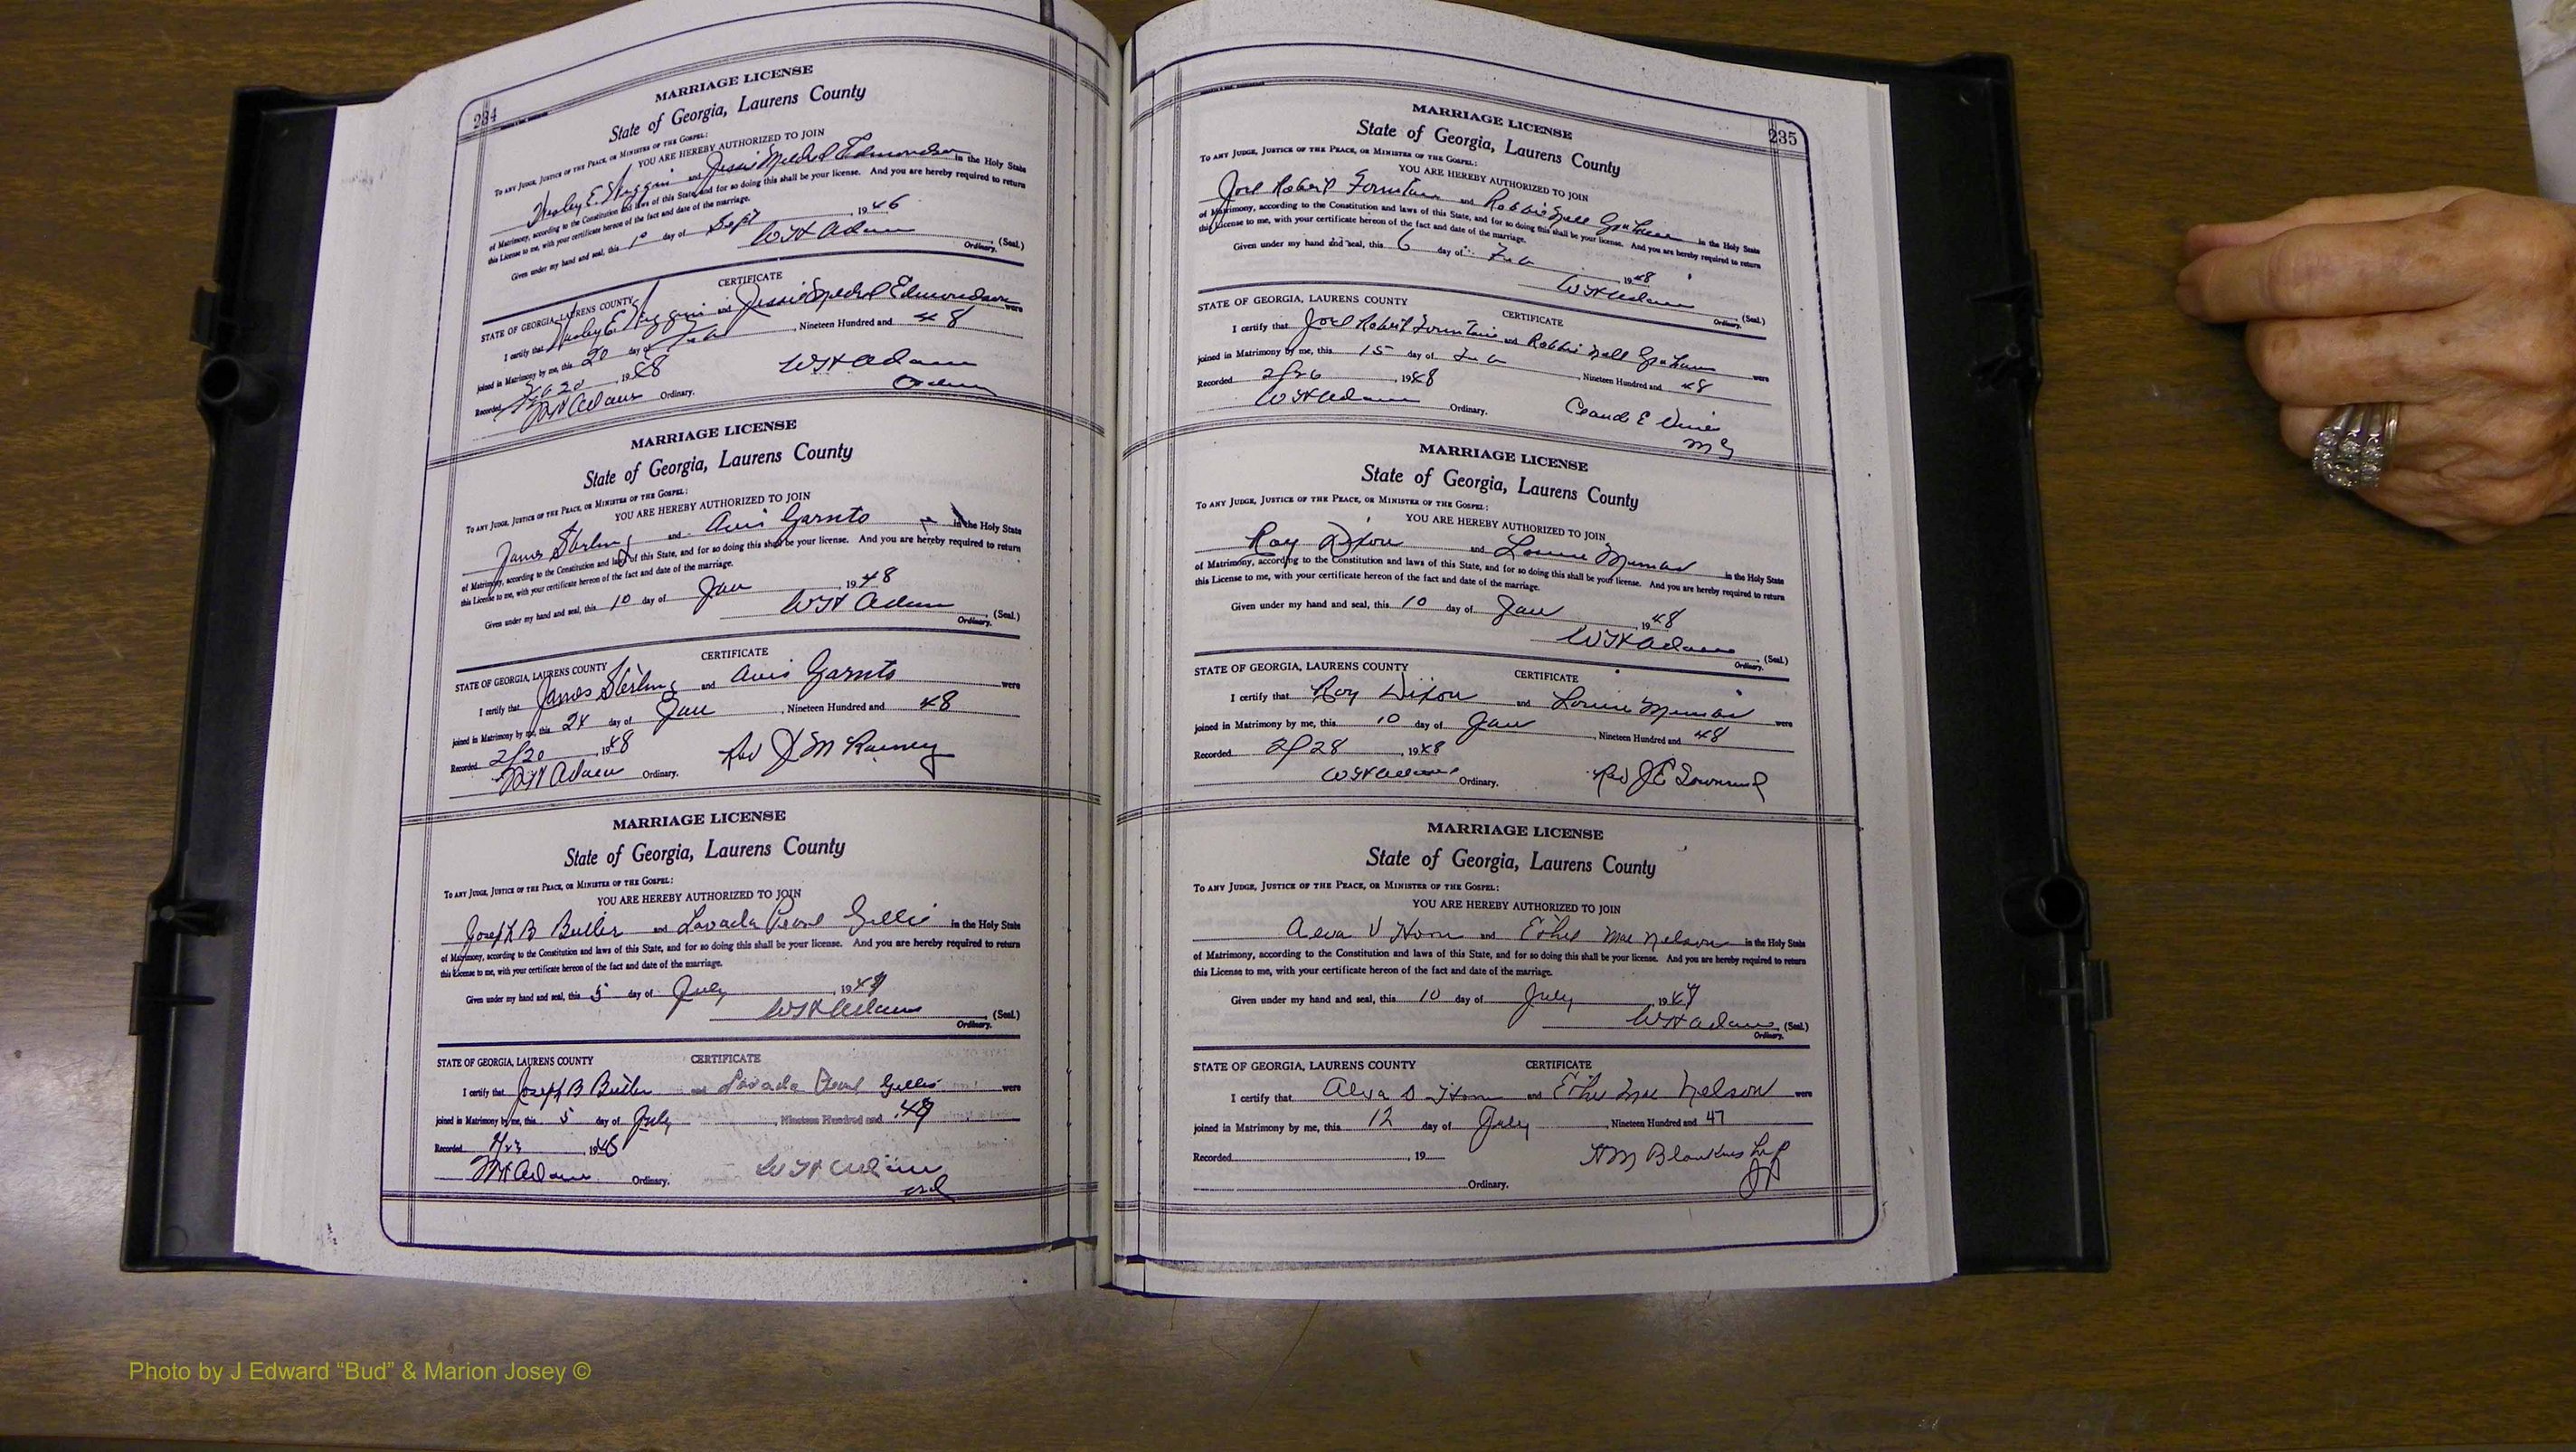 234
MARRIAGE LICENSE
State of Georgia, Laurens County
To any Judge, Justice of the Peace, or Minister of the Gospel:
YOU ARE HEREBY AUTHORIZED TO JOIN
Wesley E. and Jessie Mildred Edmondson in the Holy State
of Matrimony, according to the Constitution and laws of this State, and for so doing this shall be your license. And you are hereby required to return
this License to me, with your certificate hereon of the fact and date of the marriage.
Given under my hand and seal, this 10 day of Sept, 1946
WH Adams (Seal.)
Ordinary.
CERTIFICATE
STATE OF GEORGIA, LAURENS COUNTY
I certify that Wesley E. and Jessie Mildred Edmondson were
joined in Matrimony by me, this 20 day of Feb, Nineteen Hundred and 48
Recorded Feb 20, 1948
WH Adams Ordinary. WH Adams
Ordinary
MARRIAGE LICENSE
State of Georgia, Laurens County
To any Judge, Justice of the Peace, or Minister of the Gospel:
YOU ARE HEREBY AUTHORIZED TO JOIN
James Sterling and Avis Garnto in the Holy State
of Matrimony, according to the Constitution and laws of this State, and for so doing this shall be your license. And you are hereby required to return
this License to me, with your certificate hereon of the fact and date of the marriage.
Given under my hand and seal, this 10 day of Jan, 1948
WH Adams (Seal.)
Ordinary.
CERTIFICATE
STATE OF GEORGIA, LAURENS COUNTY
I certify that James Sterling and Avis Garnto were
joined in Matrimony by me, this 24 day of Jan, Nineteen Hundred and 48
Recorded 2/20, 1948
WH Adams Ordinary. Rev J M Raney
MARRIAGE LICENSE
State of Georgia, Laurens County
To any Judge, Justice of the Peace, or Minister of the Gospel:
YOU ARE HEREBY AUTHORIZED TO JOIN
Joseph B Butler and Lavada Pearl Gillis in the Holy State
of Matrimony, according to the Constitution and laws of this State, and for so doing this shall be your license. And you are hereby required to return
this License to me, with your certificate hereon of the fact and date of the marriage.
Given under my hand and seal, this 5 day of July, 1947
WH Adams (Seal.)
Ordinary.
STATE OF GEORGIA, LAURENS COUNTY CERTIFICATE
I certify that Joseph B Butler and Lavada Pearl Gillis were
joined in Matrimony by me, this 5 day of July, Nineteen Hundred and 47
Recorded, 1948
WH Adams Ordinary. WH Adams
Ord
235
MARRIAGE LICENSE
State of Georgia, Laurens County
To any Judge, Justice of the Peace, or Minister of the Gospel:
YOU ARE HEREBY AUTHORIZED TO JOIN
Joel Robert Fountain and Robbie Nell Graham in the Holy State
of Matrimony, according to the Constitution and laws of this State, and for so doing this shall be your license. And you are hereby required to return
this License to me, with your certificate hereon of the fact and date of the marriage.
Given under my hand and seal, this 6 day of Feb, 1948
WH Adams (Seal.)
Ordinary.
STATE OF GEORGIA, LAURENS COUNTY CERTIFICATE
I certify that Joel Robert Fountain and Robbie Nell Graham were
joined in Matrimony by me, this 15 day of Feb, Nineteen Hundred and 48
Recorded 2/26, 1948
WH Adams Ordinary. Claude E Vines
MG
MARRIAGE LICENSE
State of Georgia, Laurens County
To any Judge, Justice of the Peace, or Minister of the Gospel:
YOU ARE HEREBY AUTHORIZED TO JOIN
Roy Dixon and Louise in the Holy State
of Matrimony, according to the Constitution and laws of this State, and for so doing this shall be your license. And you are hereby required to return
this License to me, with your certificate hereon of the fact and date of the marriage.
Given under my hand and seal, this 10 day of Jan, 1948
WH Adams (Seal.)
Ordinary.
STATE OF GEORGIA, LAURENS COUNTY CERTIFICATE
I certify that Roy Dixon and Louise were
joined in Matrimony by me, this 10 day of Jan, Nineteen Hundred and 48
Recorded 2/28, 1948
WH Adams Ordinary. Rev J E Townsend
MARRIAGE LICENSE
State of Georgia, Laurens County
To any Judge, Justice of the Peace, or Minister of the Gospel:
YOU ARE HEREBY AUTHORIZED TO JOIN
Alva V Horn and Ethel Mae Nelson in the Holy State
of Matrimony, according to the Constitution and laws of this State, and for so doing this shall be your license. And you are hereby required to return
this License to me, with your certificate hereon of the fact and date of the marriage.
Given under my hand and seal, this 10 day of July, 1947
WH Adams (Seal.)
Ordinary.
STATE OF GEORGIA, LAURENS COUNTY CERTIFICATE
I certify that Alva Horn and Ethel Mae Nelson were
joined in Matrimony by me, this 12 day of July, Nineteen Hundred and 47
Recorded, 19 HM Blankinship
Ordinary. JP
Photo by J Edward “Bud” & Marion Josey ©